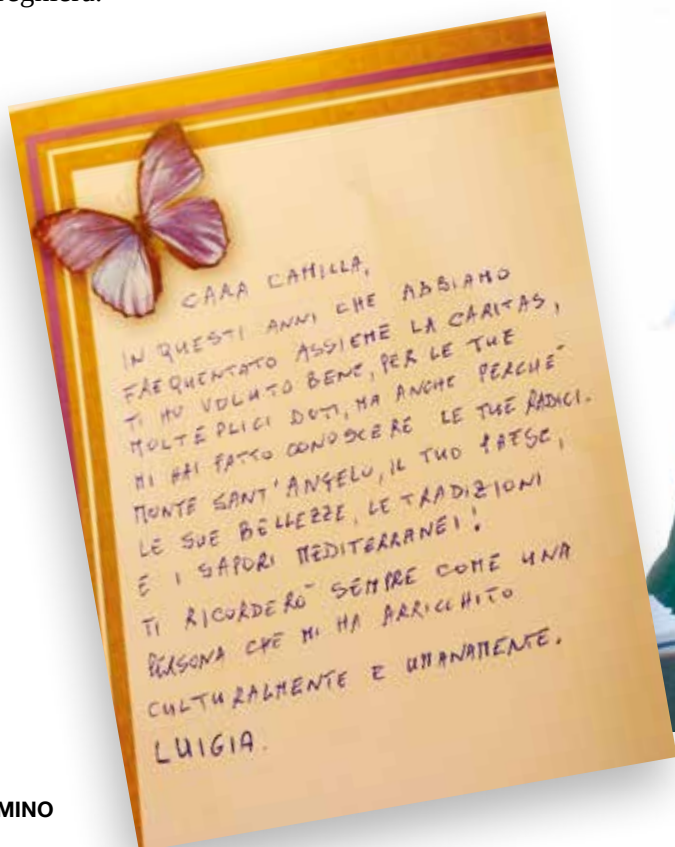 CARA CAMILLA,
IN QUESTI ANNI CHE ABBIAMO
FREQUENTATO ASSIEME LA CARITAS,
TI HO VOLUTO BENE, PER LE TUE
MOLTEPLICI DOTI, MA ANCHE PERCHE'
MI HAI FATTO CONOSCERE LE TUE RADICI.
MONTE SANT'ANGELO, IL TUO PAESE,
LE SUE BELLEZZE, LE TRADIZIONI
E I SAPORI MEDITERRANEI!
TI RICORDERO' SEMPRE COME UNA
PERSONA CHE MI HA ARRICCHITO
CULTURALMENTE E UMANAMENTE.
LUIGIA.
MINO